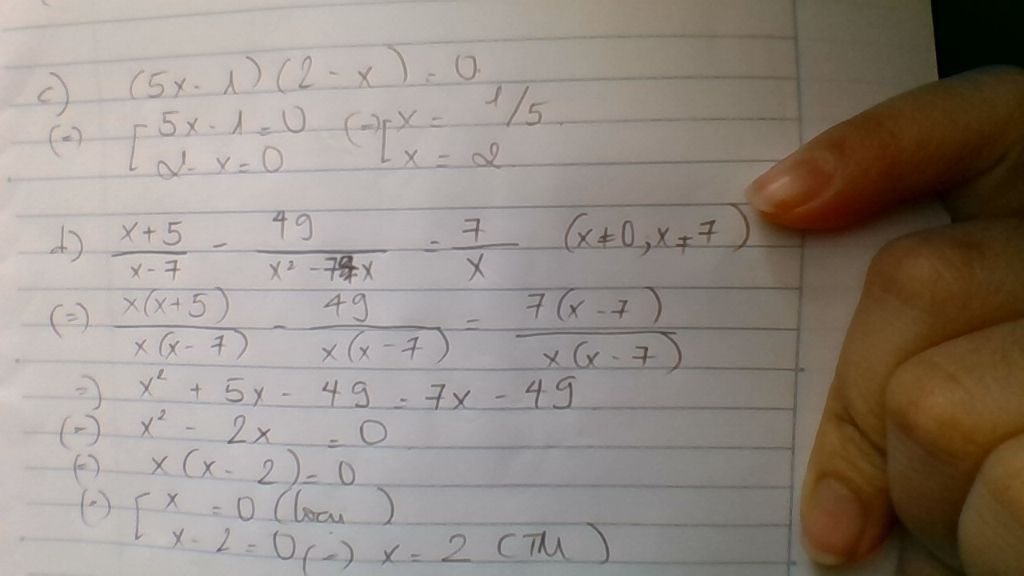 c) (5x - 1)(2 - x) = 0
(=) [ 5x - 1 = 0 (=) [ x = 1/5
2 - x = 0 x = 2
d) x+5/x-7 - 49/x² - 7x = 7/x (x ≠ 0, x ≠ 7)
(=) x(x+5)/x(x-7) - 49/x(x-7) = 7(x-7)/x(x-7)
=) x² + 5x - 49 = 7x - 49
(=) x² - 2x = 0
(=) x(x - 2) = 0
(=) [ x = 0 (loại)
x - 2 = 0 (=) x = 2 (TM)